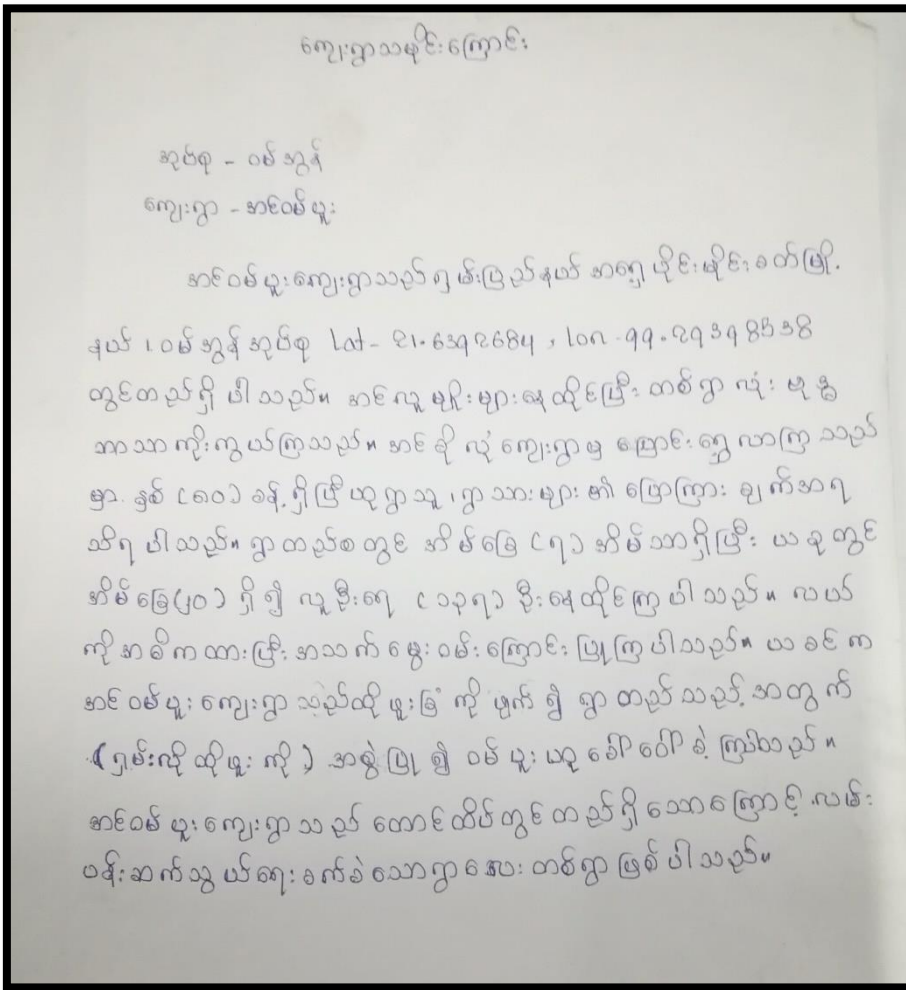 ကျေးရွာသမိုင်းကြောင်း
အုပ်စု - ဝမ်အွန်
ကျေးရွာ - အင်ဝမ်ပူး
အင်ဝမ်ပူးကျေးရွာသည် ရှမ်းပြည်နယ် အရှေ့ပိုင်း မိုင်းခတ်မြို့
နယ် ၊ ဝမ်အွန်အုပ်စု Lat - 21.6392684 , lon - 99.29398538
တွင်တည်ရှိ ပါသည်။ အင်လူမျိုးများနေထိုင်ပြီး တစ်ရွာလုံး ဗုဒ္ဓ
ဘာသာကိုးကွယ်ကြသည်။ အင် ကျေးရွာမှ ပြောင်းရွှေ့လာကြသည်
မှာ နှစ် (၈၀) ခန့်ရှိပြီဟုရွာသူ ၊ ရွာသားများ ၏ ပြောကြား ချက်အရ
သိရ ပါသည်။ ရွာတည်စတွင် အိမ်ခြေ (၇) အိမ်သာရှိပြီး ယခုတွင်
အိမ်ခြေ(၂၀) ရှိ၍ လူဦးရေ (၁၃၇) ဦးနေထိုင်ကြပါသည်။ လယ်
ကို အဓိကထားပြီး အသက်မွေးဝမ်းကြောင်း ပြုကြပါသည်။ ယခင်က
အင်ဝမ်ပူး ကျေးရွာသည်ထိုဖူးခြံ ကို ဖျက်၍ ရွာတည်သည့်အတွက်
(ရှမ်းလိုထိုဖူးကို) အစွဲပြု၍ ဝမ်ပူး ဟုခေါ်ဝေါ်ခဲ့ကြပါသည်။
အင်ဝမ်ပူးကျေးရွာသည် တောင်ထိပ်တွင်တည်ရှိသောကြောင့် လမ်း
ပန်းဆက်သွယ်ရေး ခက်ခဲသောရွာလေး တစ်ရွာဖြစ်ပါသည်။